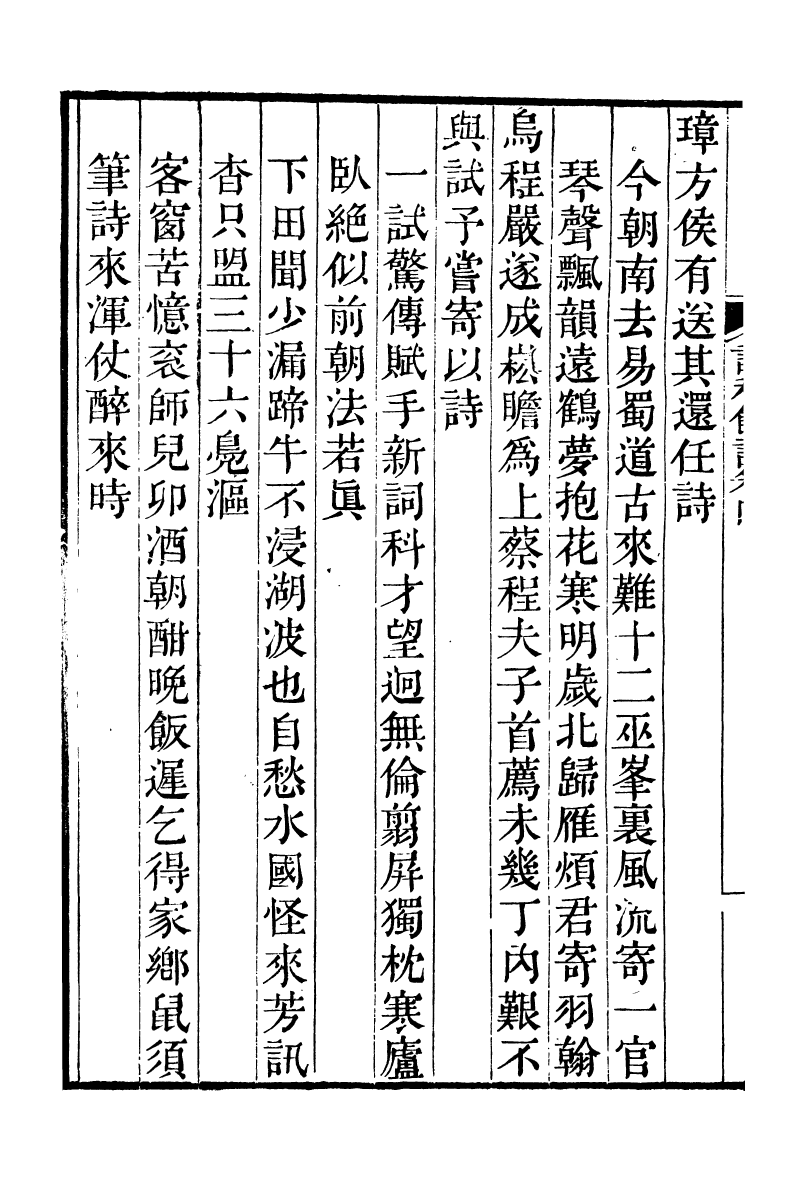 璋方侯有送其還任詩
今朝南去易蜀道古來難十二巫峯裏風流寄一官
琴聲飄韻遠鶴夢抱花寒明歲北歸雁煩君寄羽翰
烏程嚴遂成崧瞻爲上蔡程夫子首薦未幾丁內艱不
與試予嘗寄以詩
一試驚傳賦手新詞科才望迥無倫翦屏獨枕寒廬
臥絕似前朝法若眞
下田聞少漏蹄牛不浸湖波也自愁水國怪來芳訊
杳只盟三十六鳧漚
客窗苦憶衮師兒卯酒朝酣晚飯遲乞得家鄉鼠須
筆詩來渾仗醉來時